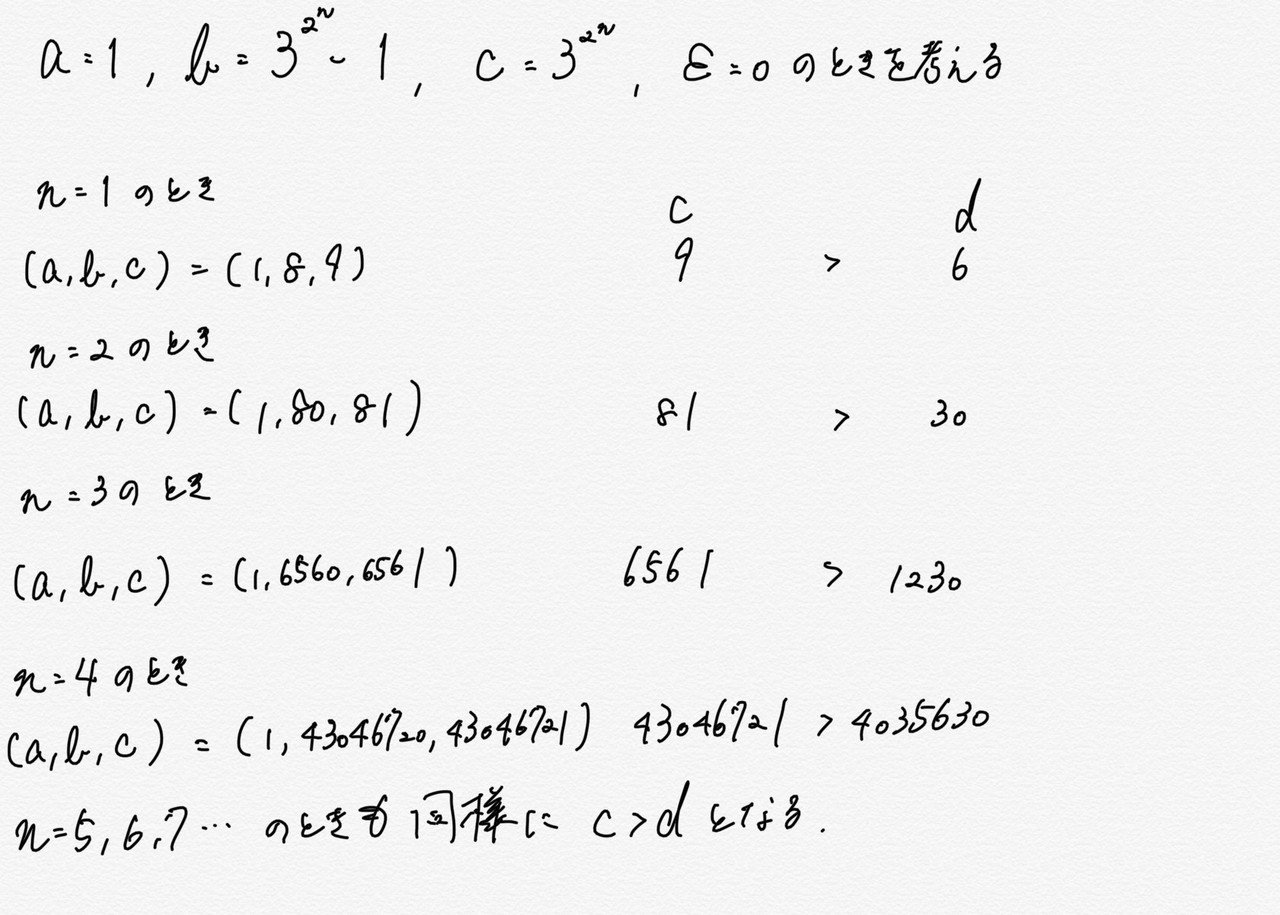 a=1, b=3^{2^n}-1, c=3^{2^n}, ε=0 のときを考える
n=1 のとき
c d
(a,b,c)=(1,8,9) 9 > 6
n=2 のとき
(a,b,c)=(1,80,81) 81 > 30
n=3 のとき
(a,b,c)=(1,6560,6561) 6561 > 1230
n=4 のとき
(a,b,c)=(1,43046720,43046721) 43046721 > 4035630
n=5,6,7… のときも同様に c>d となる.